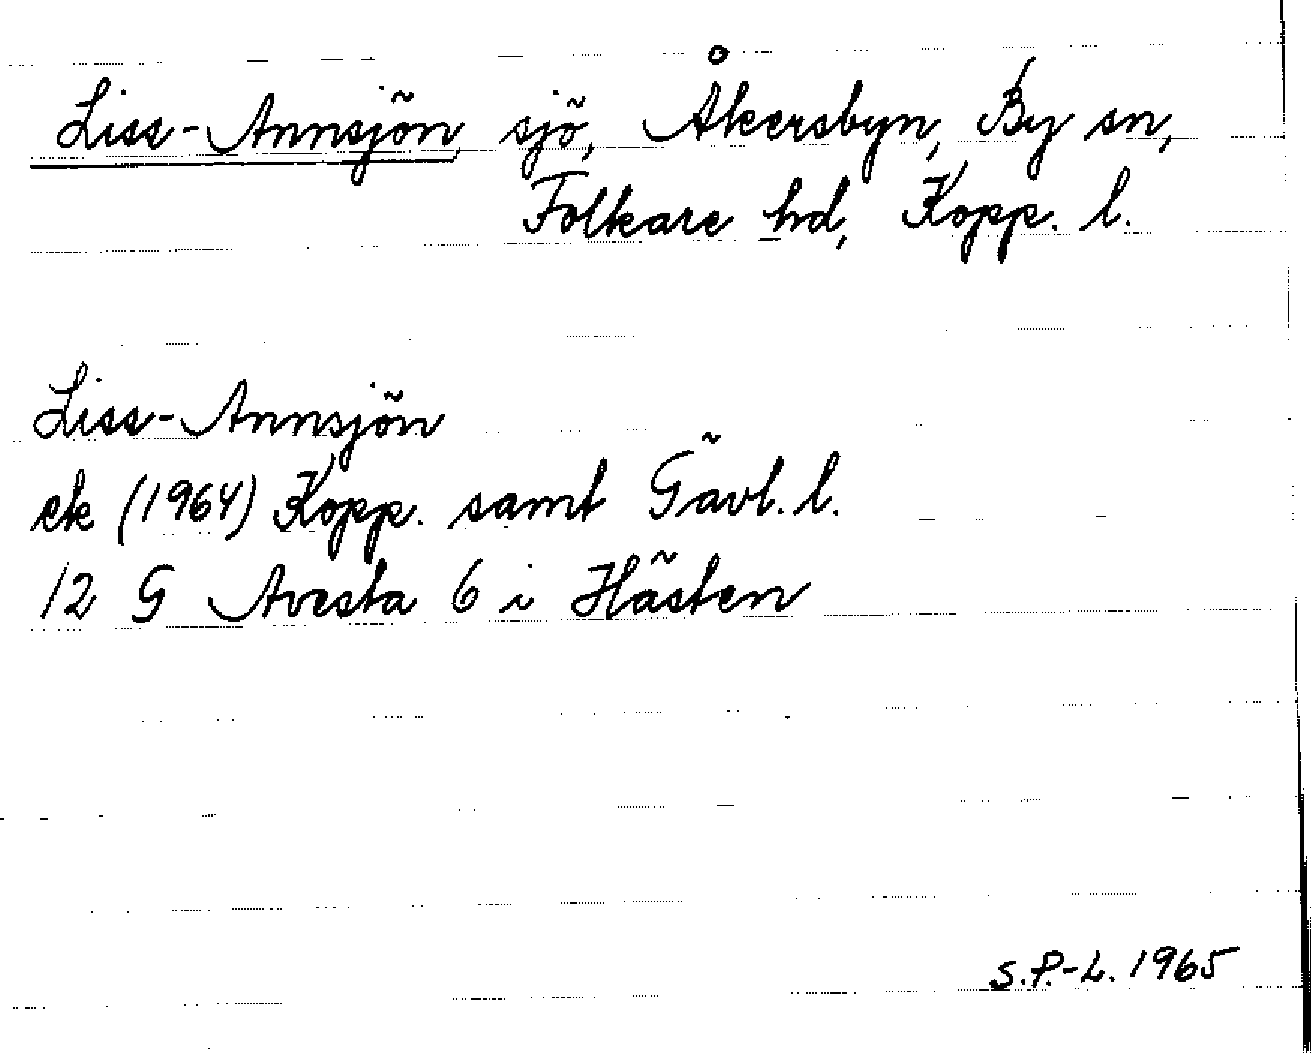 Liss-Annsjön, sjö, Åkersbyn, By sn,
Folkare hd, Kopp. l.
Liss-Annsjön
ek (1964) Kopp. samt Gävl. l.
12 G Avesta 6 i Hästen
S.P.-L. 1965